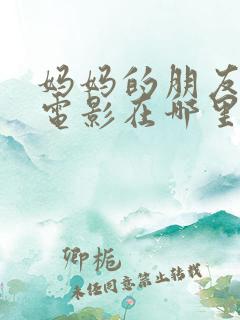 妈妈的朋友
電影在哪里
卿栀
未经同意禁止转载